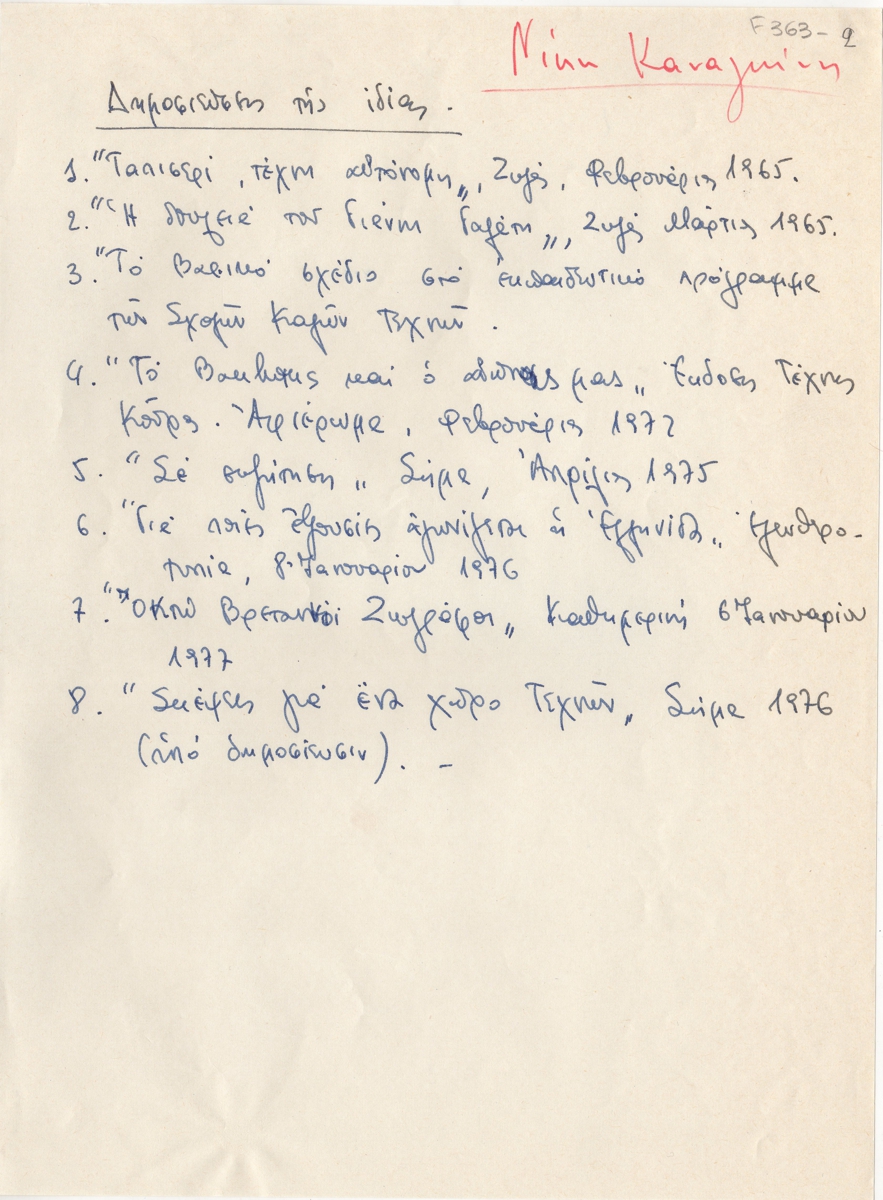 F363-2
Νίκη Καναγκίνη
Δημοσιεύσεις τῆς ἰδίας.
1. "Ταπισερί, τέχνη αὐτόνομη", Ζυγός, Φεβρουάριος 1965.
2. "Ἡ δουλειά τοῦ Γιάννη Γαΐτη", Ζυγός Μάρτιος 1965.
3. "Τό Βασικό σχέδιο στό ἐκπαιδευτικό πρόγραμμα
τῶν Σχολῶν Καλῶν Τεχνῶν.
4. "Τό Βακαὶ ὁ μας" Ἔκδοση Τέχνης
Κύπρος. Ἀφιέρωμα, Φεβρουάριος 1972
5. "Σέ συζήτηση" Σῆμα, Ἀπρίλιος 1975
6. "Γιά ποιές ἐξουσίες ἀγωνίζεται ἡ Ἑλληνίδα" Ἐλευθερο-
τυπία, 8 Ἰανουαρίου 1976
7. "Ὀκτώ Βρεταννοί Ζωγράφοι" Καθημερινή 6 Ἰανουαρίου
1977
8. "Σκέψεις γιά ἕνα χῶρο Τεχνῶν" Σῆμα 1976
(ὑπό δημοσίευσιν). –